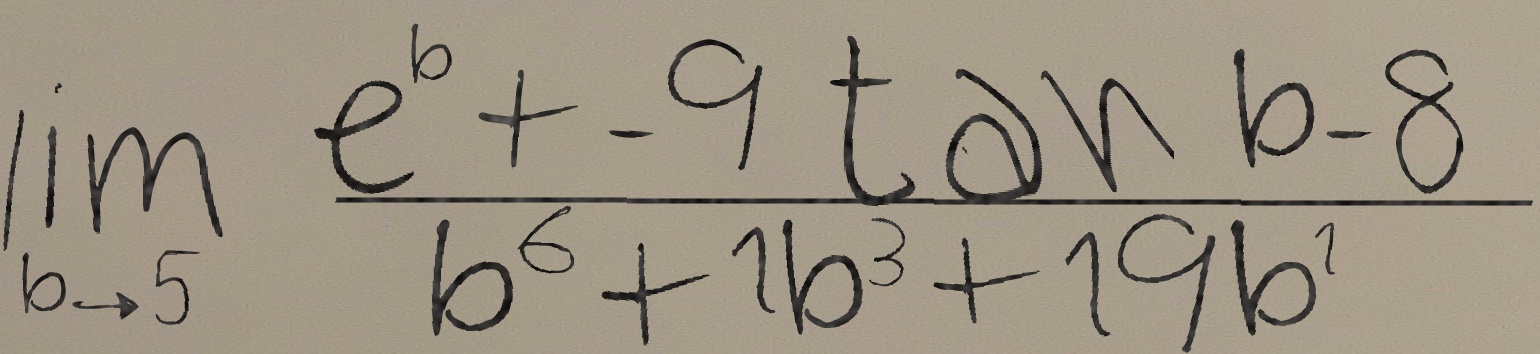 \lim_{b \to 5} \frac{e^b + -9 \tan b - 8}{b^6 + 1b^3 + 19b^1}